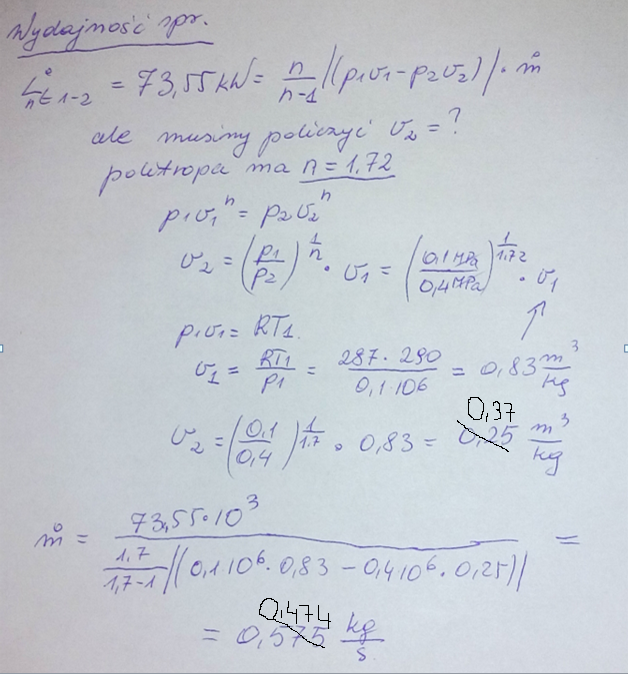 Wydajność spr.
L°nt1-2 = 73,55kW = n/n-1 |(p1v1-p2v2)| · ṁ
ale musimy policzyć v2 = ?
politropa ma n = 1.72
p1v1^n = p2v2^n
v2 = (p1/p2)^1/n · v1 = (0,1MPa/0,4MPa)^1/1.72 · v1
p1v1 = RT1.
v1 = RT1/p1 = 287·290/0,1·10^6 = 0,83 m³/kg
0,37
v2 = (0,1/0,4)^1/1.7 · 0,83 = 0,25 m³/kg
ṁ = 73,55·10³ / 1,7/1,7-1 |(0,1 10^6 · 0,83 - 0,4 10^6 · 0,25)| =
0,474
= 0,575 kg/s